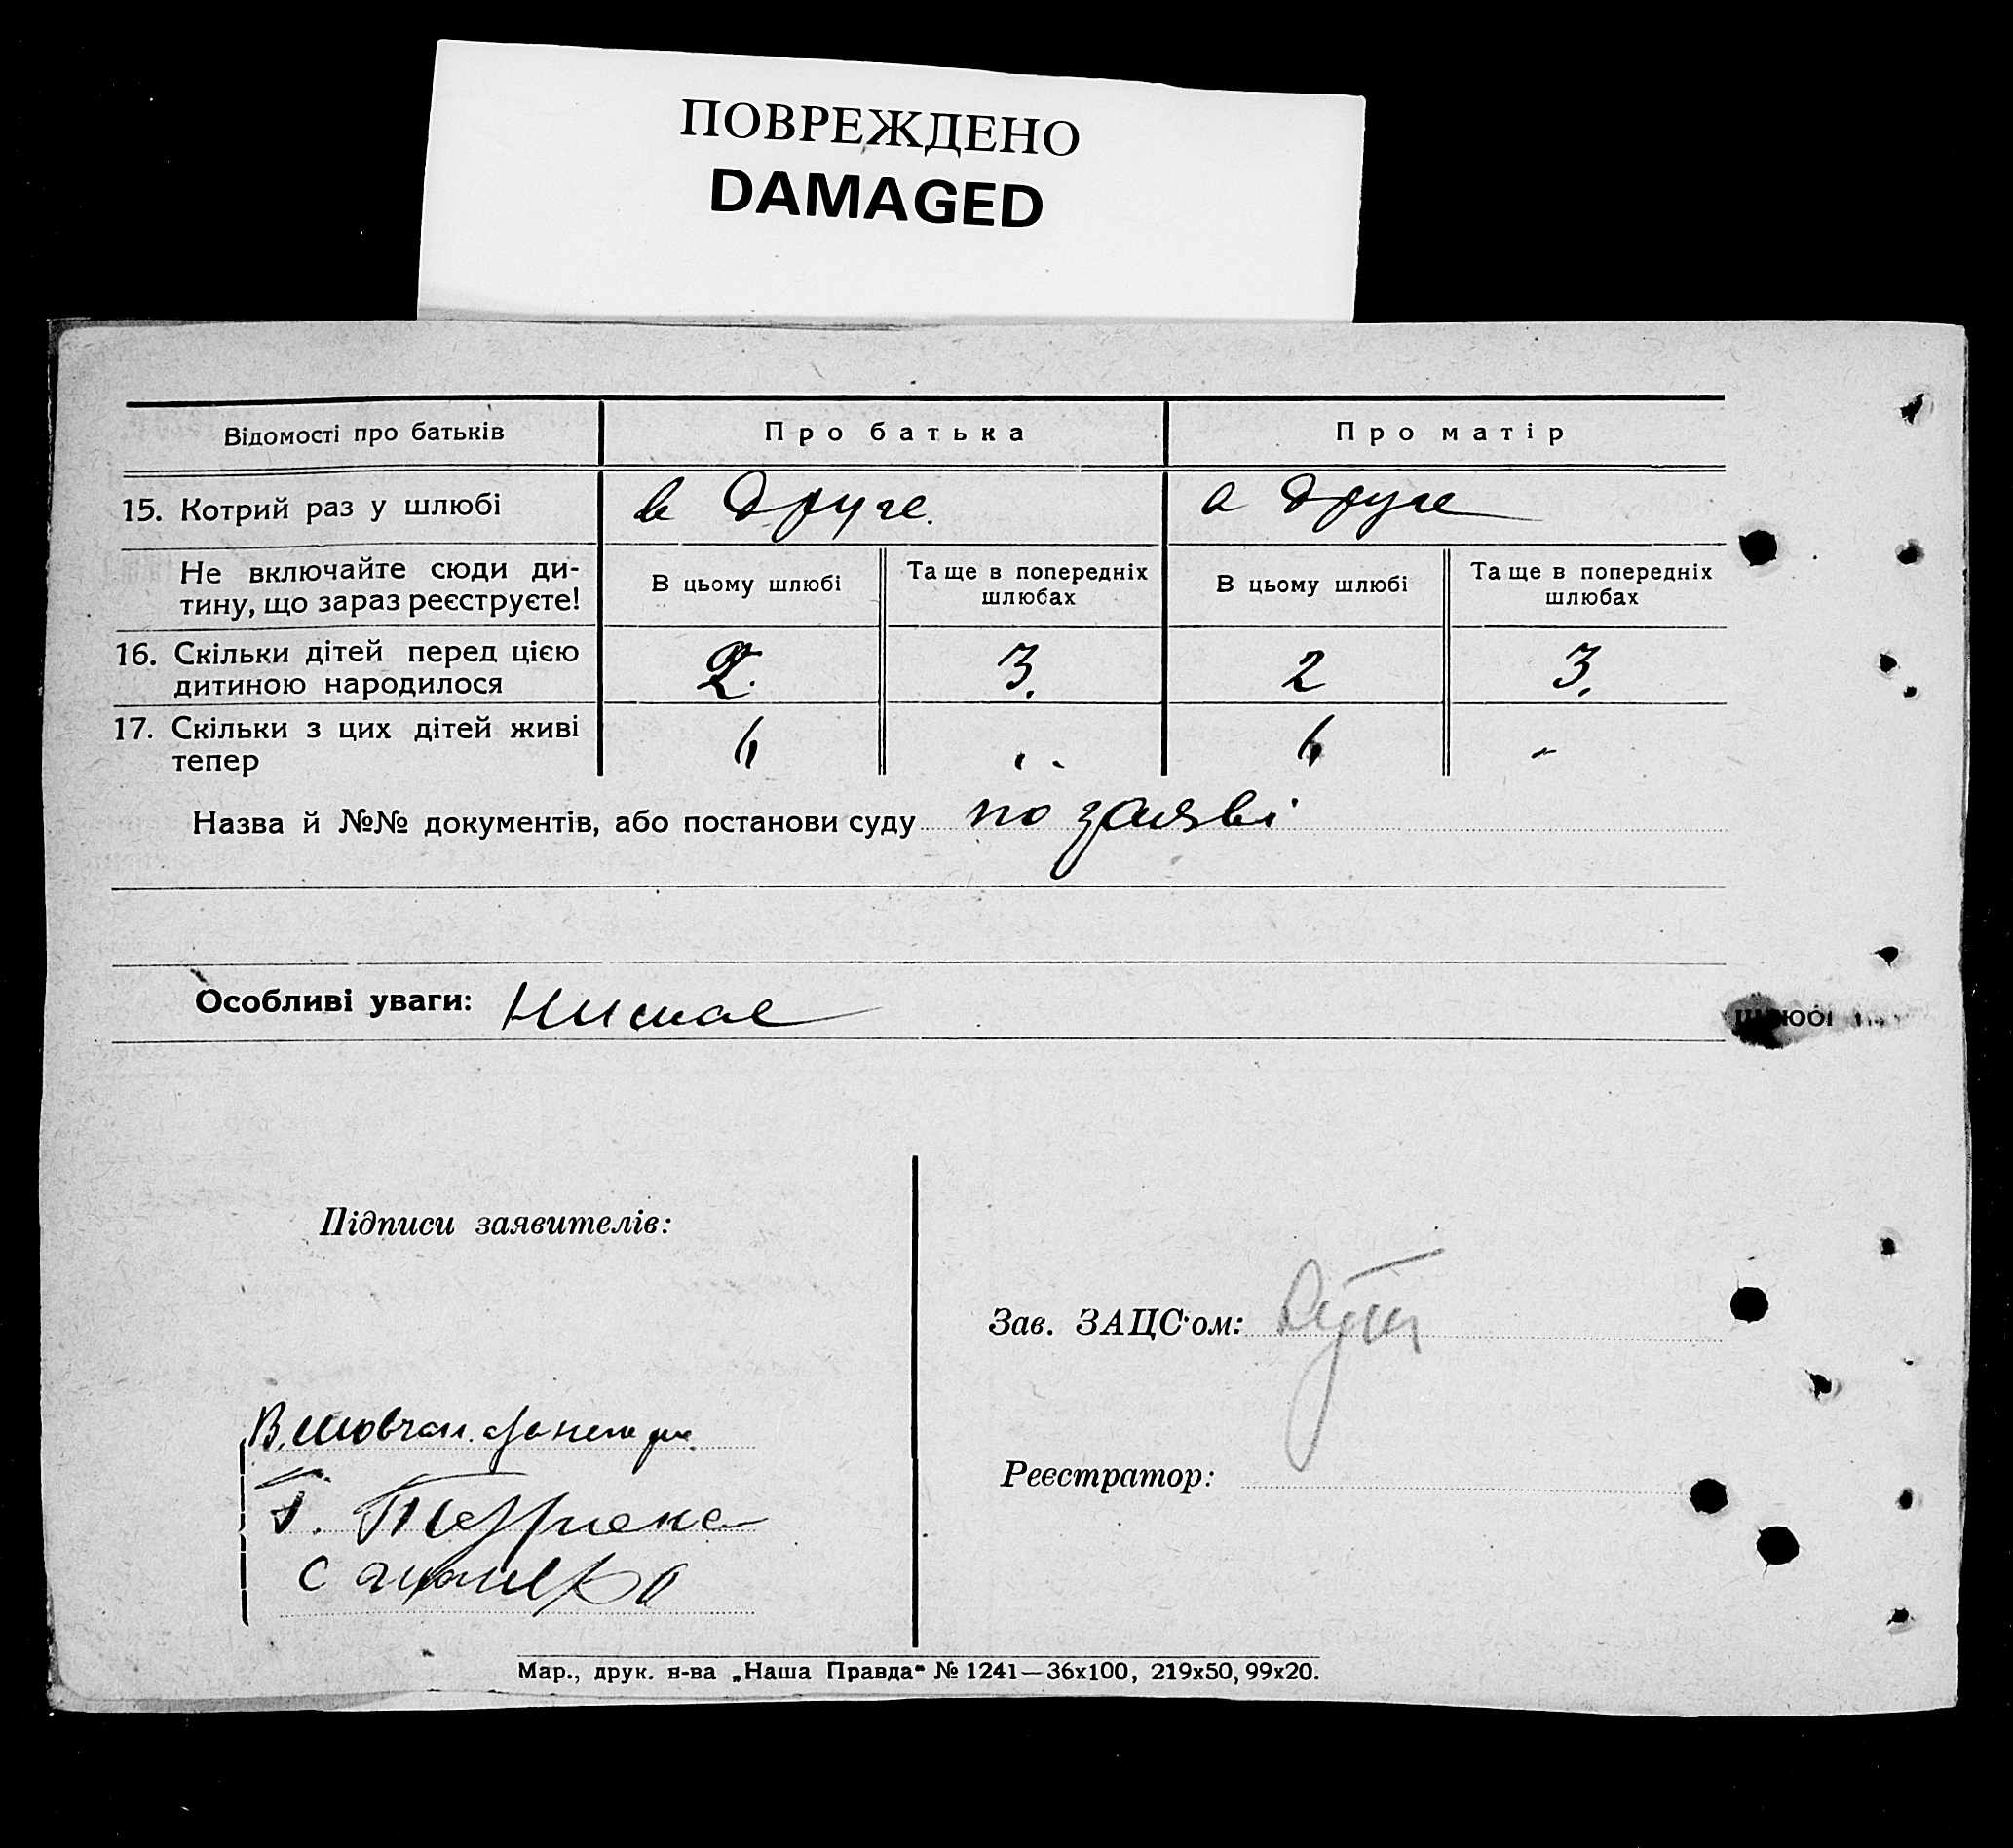 ПОВРЕЖДЕНО
DAMAGED
Відомості про батьків
Про батька
Про матір
15. Котрий раз у шлюбі
в друге.
в друге
Не включайте сюди ди-
тину, що зараз реєструєте!
В цьому шлюбі
Та ще в попередніх
шлюбах
В цьому шлюбі
Та ще в попередніх
шлюбах
16. Скільки дітей перед цією
дитиною народилося
2.
3.
2
3.
17. Скільки з цих дітей живі
тепер
Назва й №№ документів, або постанови суду по заяві
Особливі уваги: Немає
шлюбі
Підписи заявителів:
Зав. ЗАЦС'ом:
В. Мовчан
Реєстратор:
Мар., друк. в-ва „Наша Правда“ № 1241—36х100, 219х50, 99х20.